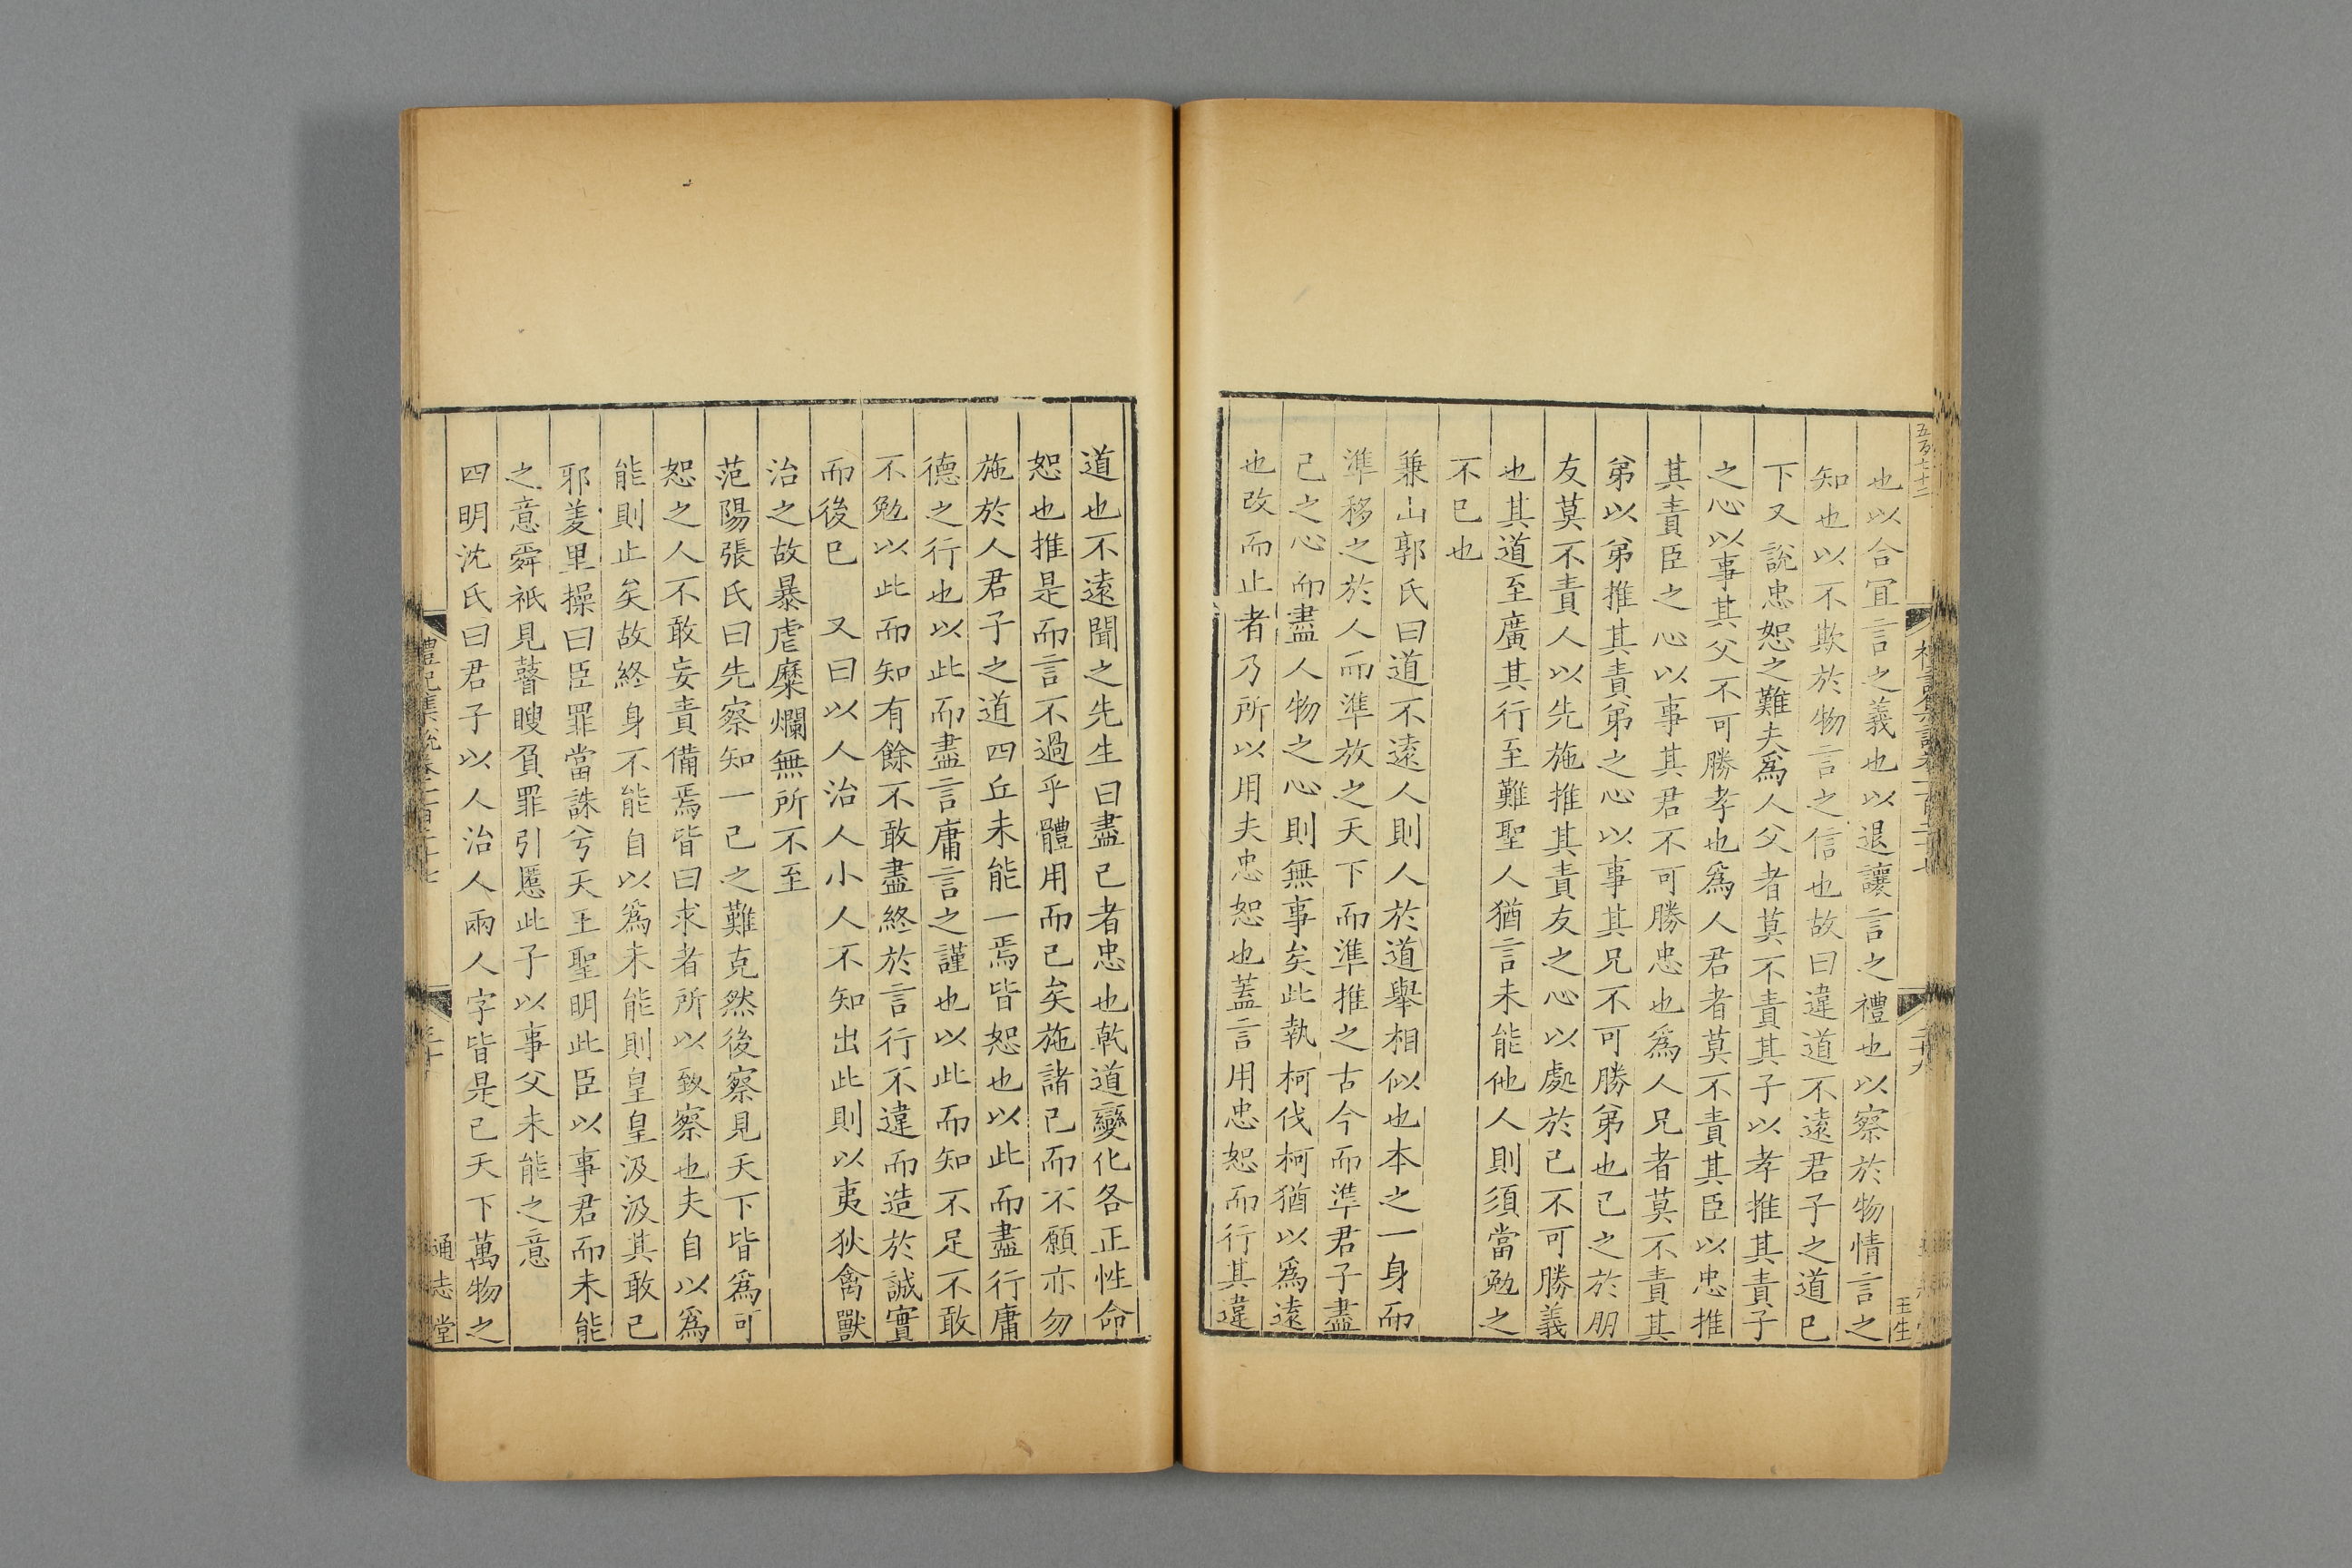 五百七十二
也以合宜言之義也以退讓言之禮也以察於物情言之
知也以不欺於物言之信也故曰違道不遠君子之道已
下又說忠恕之難夫爲人父者莫不責其子以孝推其責子
之心以事其父不可勝孝也爲人君者莫不責其臣以忠推
其責臣之心以事其君不可勝忠也爲人兄者莫不責其
弟以弟推其責弟之心以事其兄不可勝弟也己之於朋
友莫不責人以先施推其責友之心以處於己不可勝義
也其道至廣其行至難聖人猶言未能他人則須當勉之
不已也
兼山郭氏曰道不遠人則人於道舉相似也本之一身而
準移之於人而準放之天下而準推之古今而準君子盡
己之心而盡人物之心則無事矣此執柯伐柯猶以爲遠
也改而止者乃所以用夫忠恕也蓋言用忠恕而行其違
二十九
王生
道也不遠聞之先生曰盡己者忠也乾道變化各正性命
恕也推是而言不過乎體用而已矣施諸己而不願亦勿
施於人君子之道四丘未能一焉皆恕也以此而盡行庸
德之行也以此而盡言庸言之謹也以此而知不足不敢
不勉以此而知有餘不敢盡終於言行不違而造於誠實
而後已　又曰以人治人小人不知出此則以夷狄禽獸
治之故暴虐糜爛無所不至
范陽張氏曰先察知一己之難克然後察見天下皆爲可
恕之人不敢妄責備焉皆曰求者所以致察也夫自以爲
能則止矣故終身不能自以爲未能則皇皇汲汲其敢已
邪羑里操曰臣罪當誅兮天王聖明此臣以事君而未能
之意舜祇見瞽瞍負罪引慝此子以事父未能之意
四明沈氏曰君子以人治人兩人字皆是己天下萬物之
禮記集說卷一百二十七
三十
通志堂